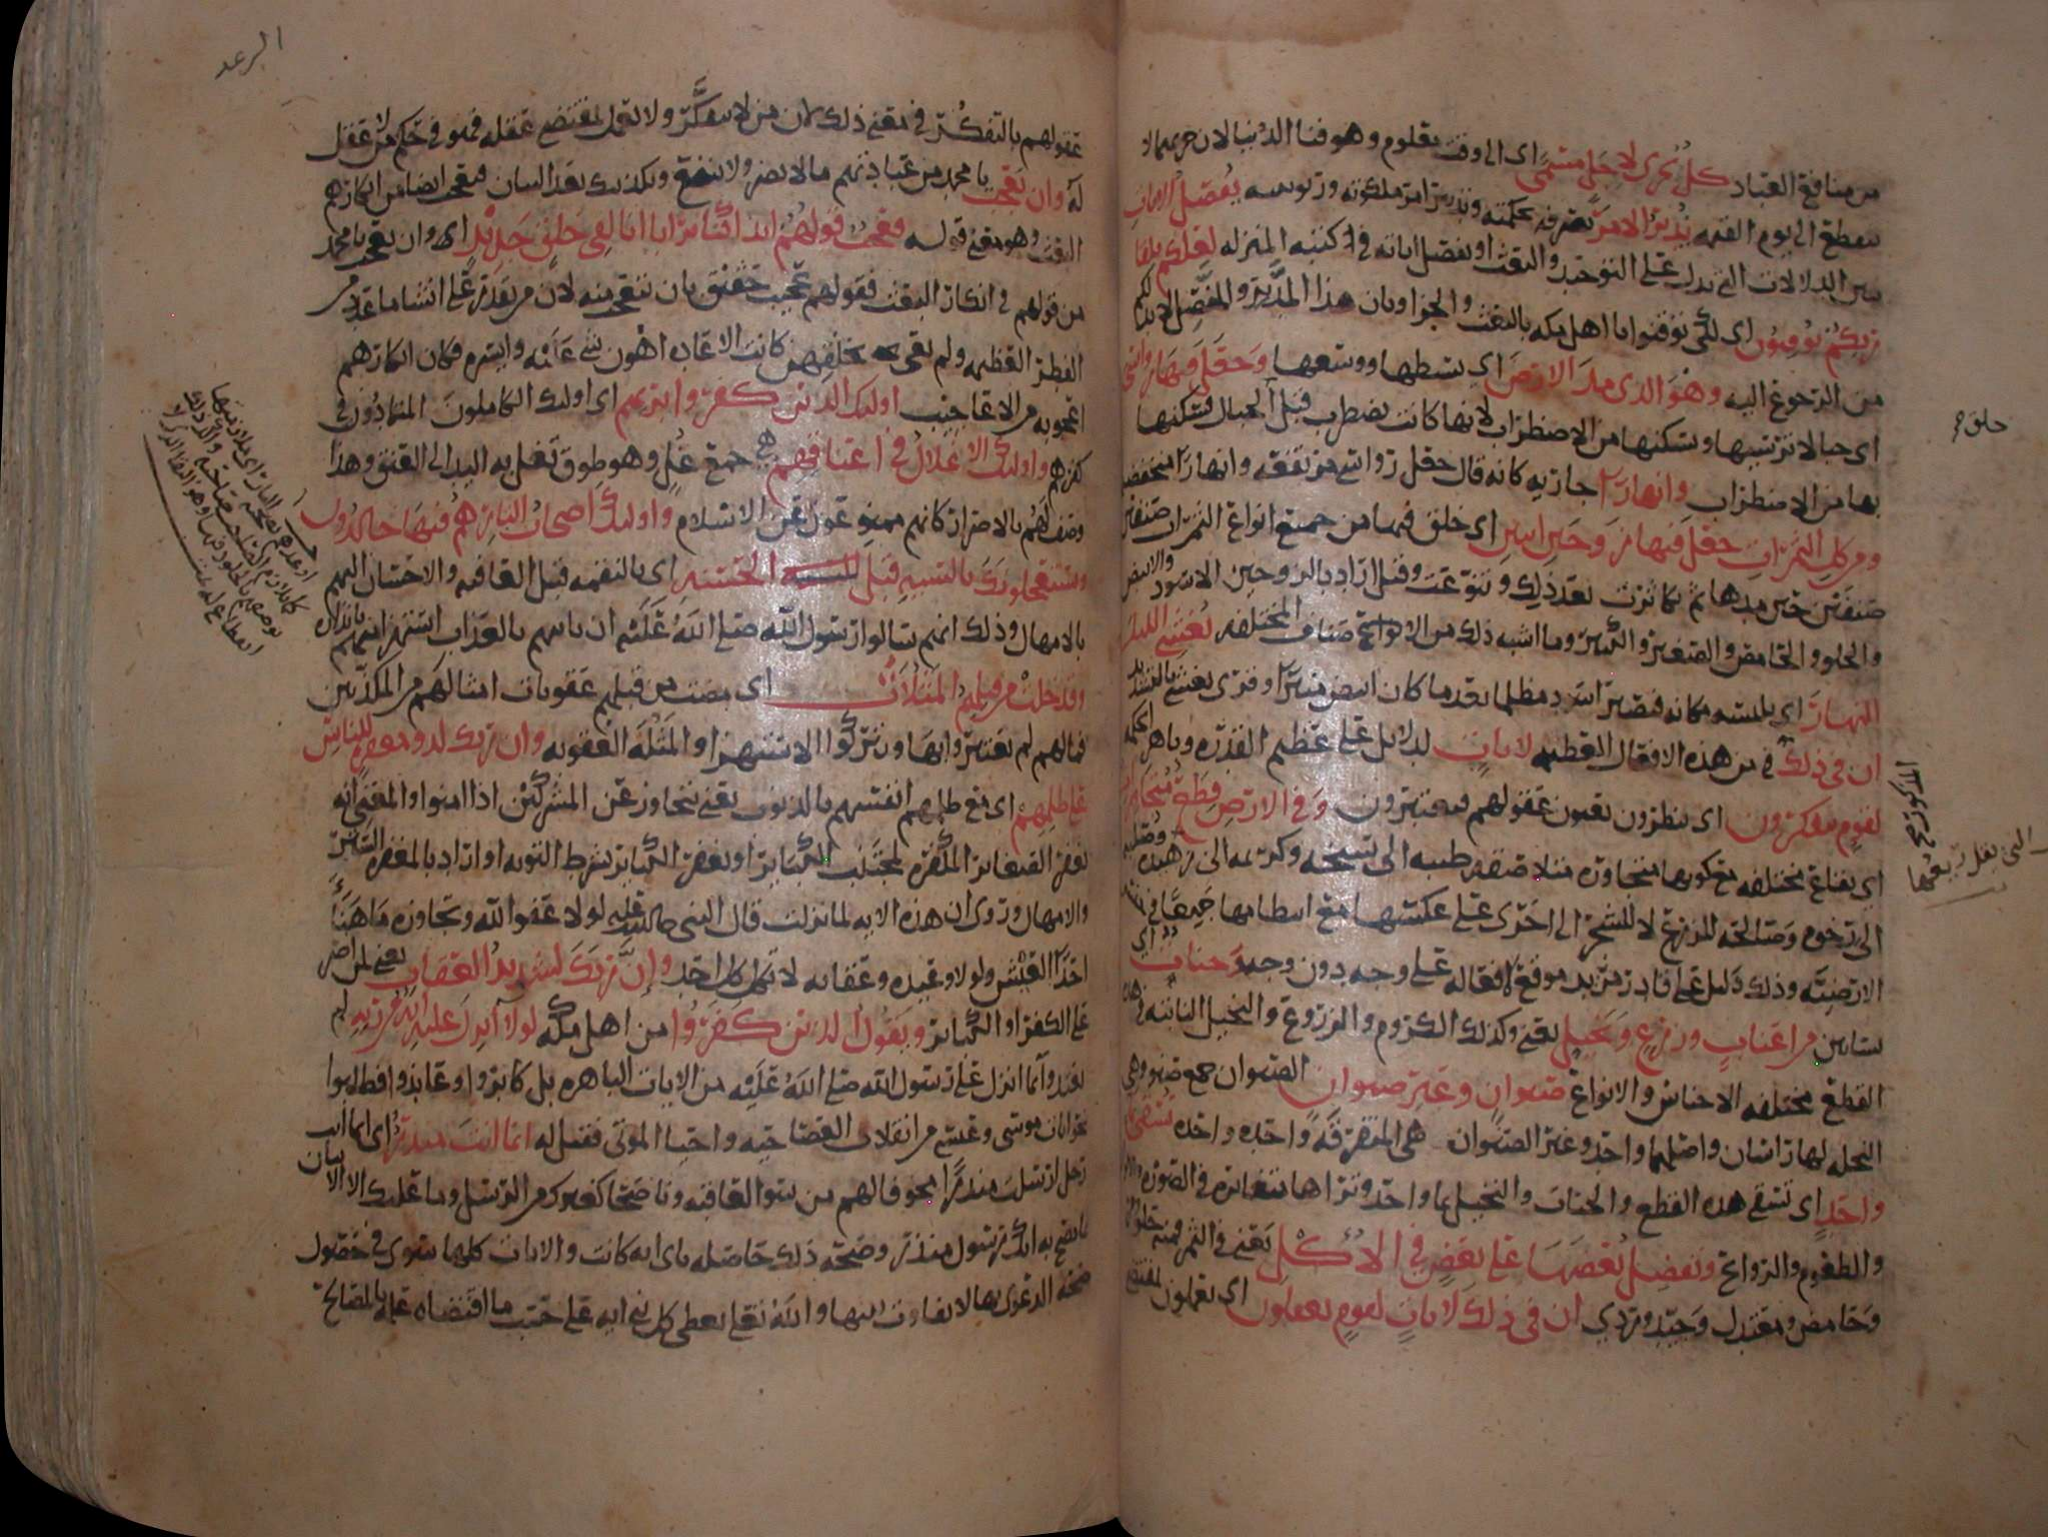 من منافع العباد كل يجري لاجل مسمى اي الى وقت معلوم وهو فنا الدنيا لان جريهما لا
ينقطع الى يوم القيمه يدبر الامر يصرفه بحكمته ويدبر امر ملكوته وربوبيته يفصل الايات
يبين الدلالات التي تدل على التوحيد والبعث او يفصل اياته في كتبه المنزله لعلكم بلقا
ربكم توقنون اي لكي توقنوا يا اهل مكه بالبعث والجزا وبان هذا المدبر والمفصل لا بد لكم
من الرجوع اليه وهو الذي مد الارض اي بسطها ووسعها وجعل فيها رواسي
اي جبالا ترسيها وتسكنها من الاضطراب لانها كانت تضطرب قبل الجبال فسكنها
بها من الاضطراب وانهارا جاريه كانه قال جعل رواسي مرتفعه وانهارا منخفضه
ومن كل الثمرات جعل فيها زوجين اثنين اي خلق فيها من جميع انواع الثمرات صنفين
صنفين حين مدها ثم تكاثرت بعد ذلك وتنوعت وقيل اراد بالزوجين الاسود والابيض
والحلو والحامض والصغير والكبير وما اشبه ذلك من الاصناف المختلفه يغشي الليل
النهار اي يلبسه مكانه فيصير اسود مظلما بعد ما كان ابيض منيرا وقرى يغشي بالتشديد
ان في ذلك في من هذه الافعال العظيمه لايات لدلايل على عظيم القدره وباهر الحكمه
لقوم يتفكرون اي ينظرون بعيون عقولهم فيعتبرون وفي الارض قطع متجاورات
اي بقاع مختلفه مع كونها متجاوره متلاصقه طيبه الى سبخه وكريمه الى زهيده وصلبه
الى رخوه وصالحه للزرع لا للشجر الى اخرى على عكسها مع انتظامها جميعا في
الارضيه وذلك دليل على قادر مريد موقع لافعاله على وجه دون وجه وجنات اي
بساتين من اعناب وزرع ونخيل يعني وكذلك الكروم والزروع والنخيل النابته في هذه
القطع مختلفه الاجناس والانواع صنوان وغير صنوان الصنوان جمع صنو وهي
النخله لها راسان واصلهما واحد وغير الصنوان هي المتفرقه واحده واحده تسقى بما
واحد اي تسقى هذه القطع والجنات والنخيل بما واحد وتراها متغايره في الصوره
والطعوم والروائح ونفضل بعضها على بعض في الاكل يعني في الثمر فمنه حلو
وحامض ومعتدل وجيد وردي ان في ذلك لايات لقوم يعقلون اي يعملون بمقتضى
المذكورة صح
الرعد
عقولهم بالتفكر في معنى ذلك لان من لا يتفكر ولا يعمل بمقتضى عقله فهو في حكم من لا عقل
له وان تعجب يا محمد من عبادتهم ما لا يضر ولا ينفع وتكذيبك بعد البيان فتعجب ايضا من انكارهم
البعث وهو معنى قوله فعجب قولهم ائذا كنا ترابا ائنا لفي خلق جديد اي وان تعجب يا محمد
من قولهم في انكار البعث فقولهم عجيب حقيق بان تتعجب منه لان من يقدر على انشا ما عدد من
الفطر العظيمه ولم يعي بخلقهن كانت الاعاده اهون شي عليه وايسره فكان انكارهم
اعجوبه من الاعاجيب اولئك الذين كفروا بربهم اي اولئك الكاملون المتمادون في
كفرهم واولئك الاغلال في اعناقهم هي جمع غل وهو طوق تغل به اليد الى العنق وهذا
وصف لهم بالاصرار كانهم ممنوعون عن الاسلام واولئك اصحاب النار هم فيها خالدون
ويستعجلونك بالسيئه قبل الحسنه اي بالنقمه قبل العافيه والاحسان اليهم
بالامهال وذلك انهم سالوا رسول الله صلى الله عليه ان ياتيهم بالعذاب استهزا منهم بانذاره
وقد خلت من قبلهم المثلات اي مضت من قبلهم عقوبات امثالهم من المكذبين
فما لهم لم يعتبروا بها ويتركوا الاستهزا والمثله العقوبه وان ربك لذو مغفره للناس
على ظلمهم اي مع ظلمهم انفسهم بالذنوب يعني يتجاوز عن المشركين اذا امنوا او المعنى انه
يغفر الصغائر المكفره لمجتنب الكبائر او يغفر الكبائر بشرط التوبه او اراد بالمغفره الستر
والامهال وروي ان هذه الايه لما نزلت قال النبي صلى الله عليه لولا عفو الله وتجاوزه ما هنا
احدا العيش ولولا وعيده وعقابه لاتكل كل احد وان ربك لشديد العقاب يعني لمن اصر
على الكفر او الكبائر ويقول الذين كفروا من اهل مكه لولا انزل عليه ايه من ربه لم
يعتدوا بما انزل على رسول الله صلى الله عليه من الايات الباهره بل كابروا وعاندوا فطلبوا
نحو ايات موسى وعيسى من انقلاب العصا حيه واحيا الموتى فقيل له انما انت منذر اي انما انت
رجل ارسلت منذرا مخوفا لهم من سو العاقبه وناصحا كغيرك من الرسل وما عليك الا الاتيان
بما يصح به انك رسول منذر وصحه ذلك حاصله باي ايه كانت والايات كلها سوى في حصول
صحه الدعوى بها لا تفاوت بينها والله تعلى يعطي كل نبي ايه على حسب ما اقتضاه علمه بالمصالح